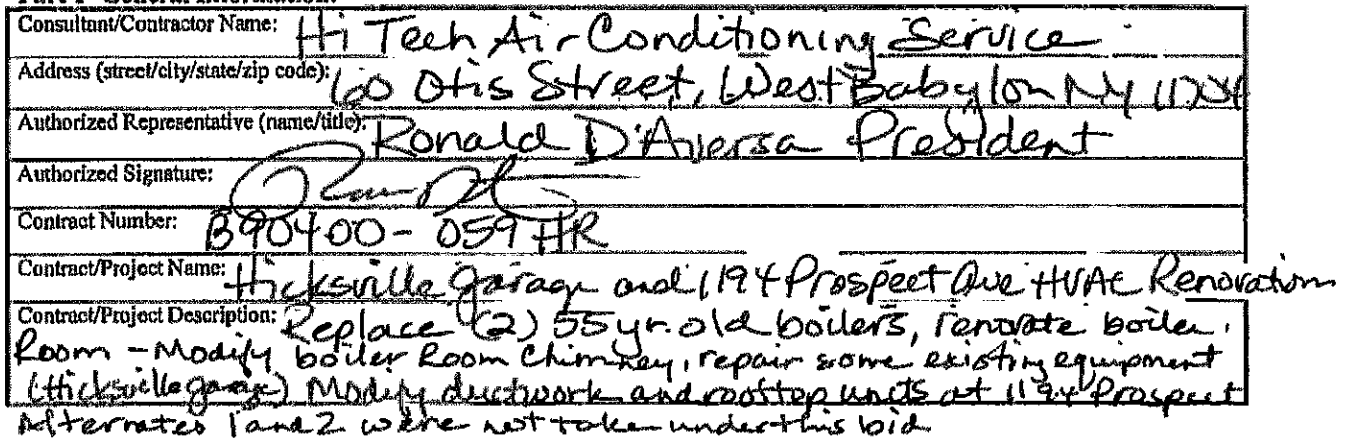 Consultant/Contractor Name: Hi Tech Air Conditioning Service
Address (street/city/state/zip code): 60 Otis Street, West Babylon NY
Authorized Representative (name/title): Ronald D'Aversa President
Authorized Signature:
Contract Number: B90400-059HR
Contract/Project Name: Hicksville Garage and 1194 Prospect Ave HVAC Renovation
Contract/Project Description: Replace (2) 55 yr. old boilers, renovate boiler
Room - Modify boiler Room Chimney, repair some existing equipment
(Hicksville garage) Modify ductwork and rooftop units at 1194 Prospect
Alternates 1 and 2 were not taken under this bid